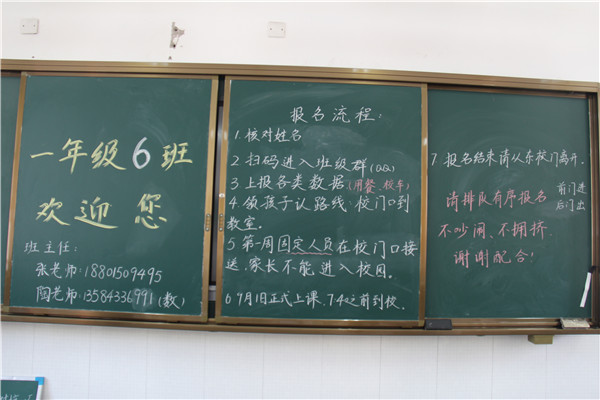 一年级6班
欢迎 您
班主任:
张老师:18801509495
陶老师:13584336991(数)
报名流程:
1.核对姓名
2 扫码进入班级群(QQ)
3 上报各类数据(用餐、校车)
4 领孩子认路线、校门口到
教室。
5 第一周固定人员在校门口接
送,家长不能进入校园。
6 9月1日正式上课,7:40之前到校.
7. 报名结束请从东校门离开.
请排队有序报名
不吵闹、不拥挤.
谢谢配合!
前门进
后门出